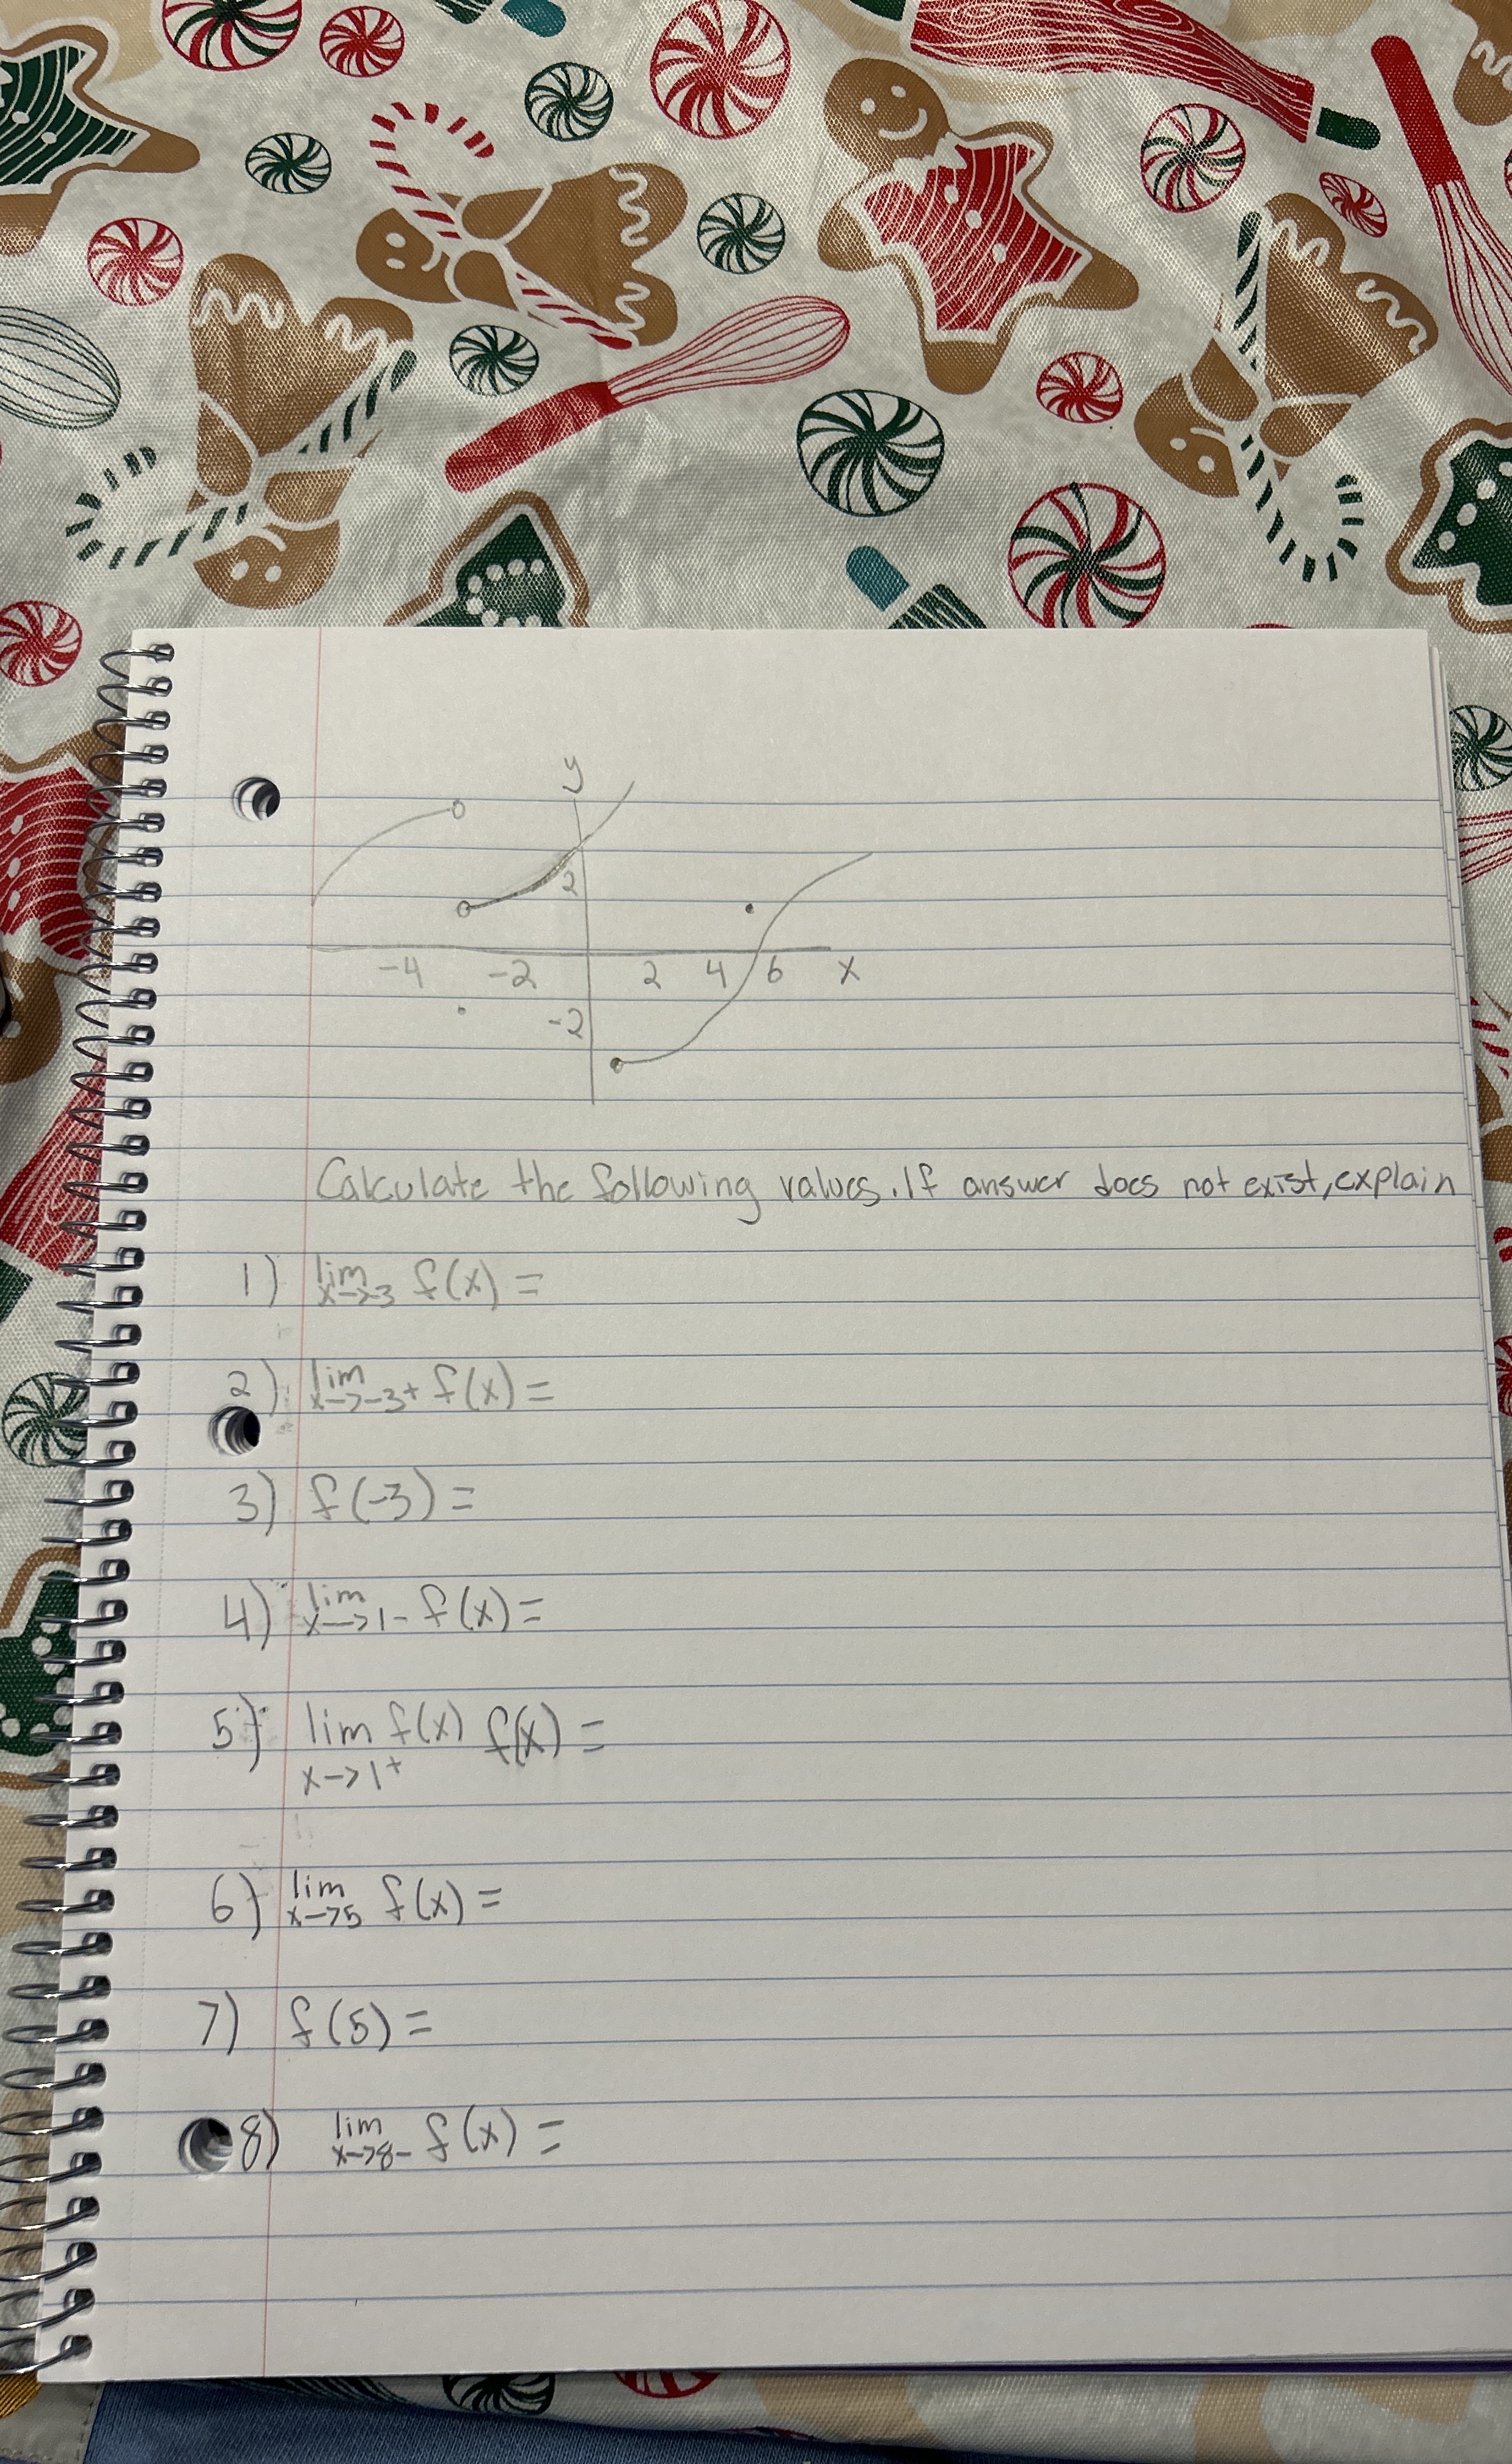 y
2
-4 -2 2 4 6 x
-2
Calculate the following values. If answer does not exist, explain
1) lim x->-3 f(x) =
2) lim x->-3+ f(x) =
3) f(-3) =
4) lim x->1- f(x) =
5) lim f(x) f(x) =
x->1+
6) lim x->5 f(x) =
7) f(5) =
8) lim x->8- f(x) =